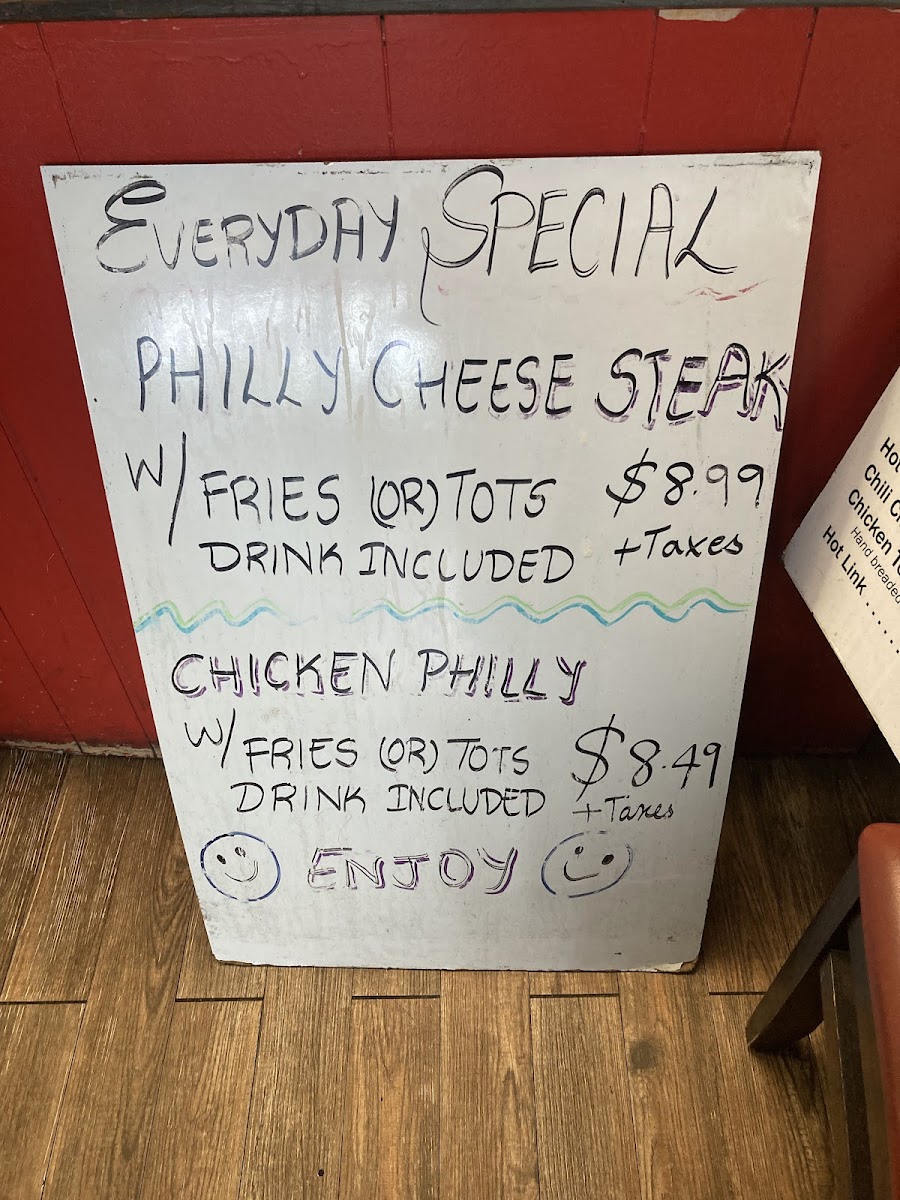 EVERYDAY SPECIAL
PHILLY CHEESE STEAK
W/ FRIES (OR) TOTS $8.99
DRINK INCLUDED +Taxes
CHICKEN PHILLY
W/ FRIES (OR) TOTS $8.49
DRINK INCLUDED +Taxes
ENJOY
Chili
Chicken
Hand breaded
Hot Link ......